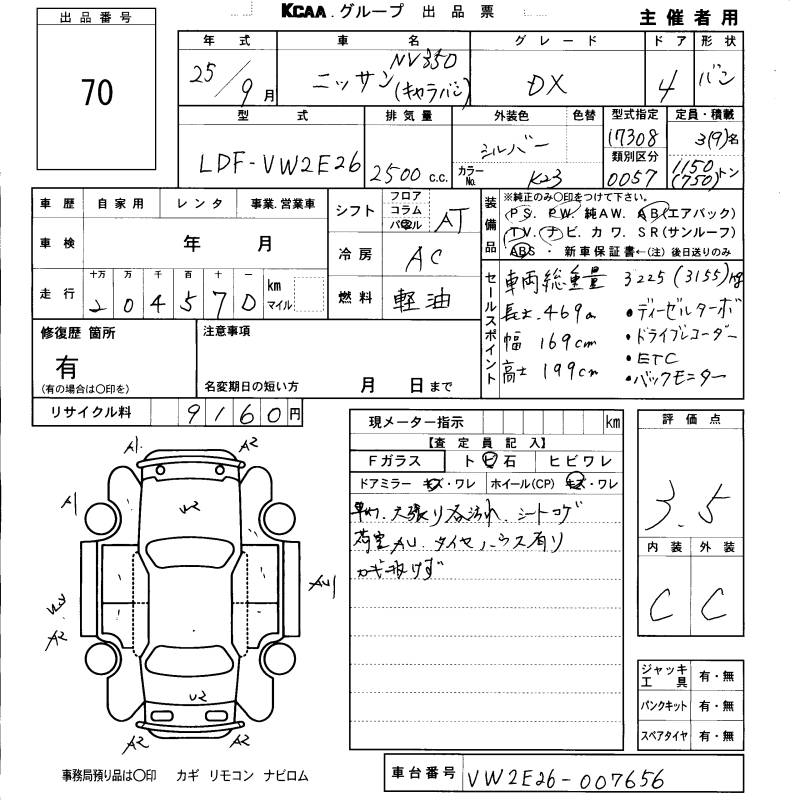 出品番号
70
KCAA.グループ 出品票
主催者用
年式 車名 グレード ドア 形状
25/9月 ニッサン NV350 (キャラバン) DX 4 バン
型式 排気量 外装色 色替 型式指定 定員・積載
LDF-VW2E26 2500c.c. シルバー カラーNo. K23 17308 3(9)名
類別区分
0057 1150(750)トン
車歴 自家用 レンタ 事業.営業車
シフト フロア コラム パネル AT
車検 年 月
冷房 AC
走行 十万 万 千 百 十 一 km マイル
2 0 4 5 7 0
燃料 軽油
装備品
※純正のみ〇印をつけて下さい。
PS. PW. 純AW. AB(エアバック)
TV. ナビ. カワ. SR(サンルーフ)
ABS・ 新車保証書←(注)後日送りのみ
セールスポイント
車両総重量 3225(3155)kg
長さ.469cm ・ディーゼルターボ
幅 169cm ・ドライブレコーダー
高さ 199cm ・ETC
・バックモニター
修復歴 箇所
有
(有の場合は〇印を)
注意事項
名変期日の短い方 月 日まで
リサイクル料 9160円
現メーター指示 km
【査定員記入】
Fガラス トビ石 ヒビワレ
ドアミラー キズ・ワレ ホイール(CP) キズ・ワレ
天張り 汚れ、シートコゲ
タイヤハウス有り
評価点
3.5
内装 外装
C C
A1 A2
A1
A2
A2 A2
ジャッキ工具 有・無
パンクキット 有・無
スペアタイヤ 有・無
事務局預り品は〇印 カギ リモコン ナビロム
車台番号 VW2E26-007656